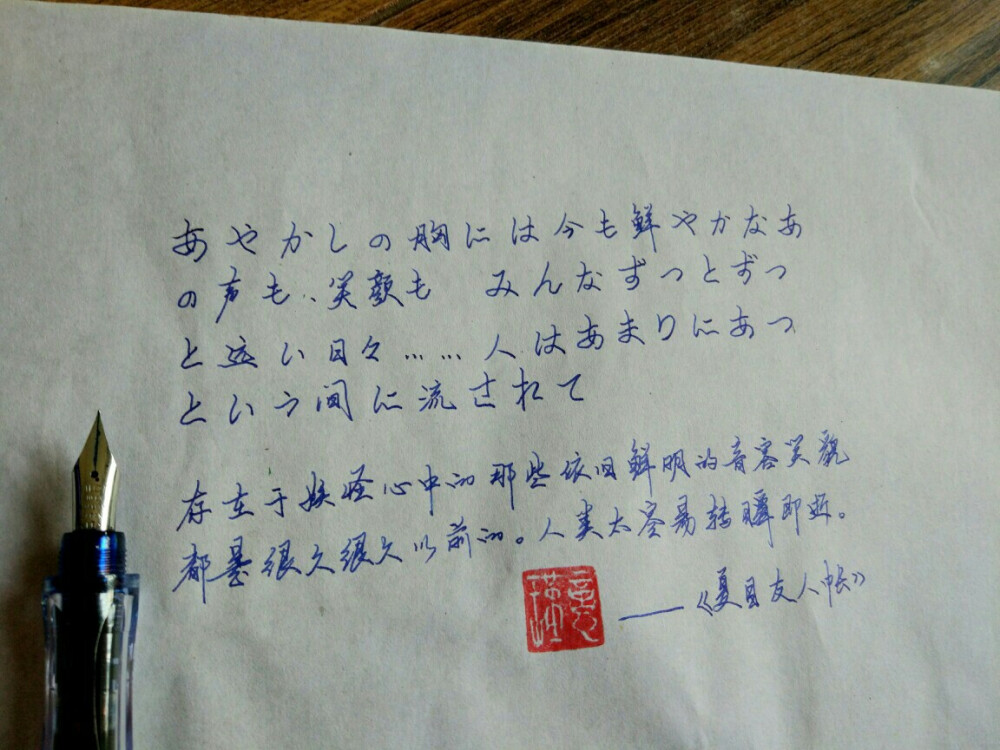 あやかしの胸には今も鮮やかなあ
の声も、笑顔も　みんなずっとずっ
と遠い日々……人はあまりにあっ
という間に流されて
存在于妖怪心中的那些依旧鲜明的音容笑貌
都是很久很久以前的。人类太容易转瞬即逝。
——《夏目友人帐》